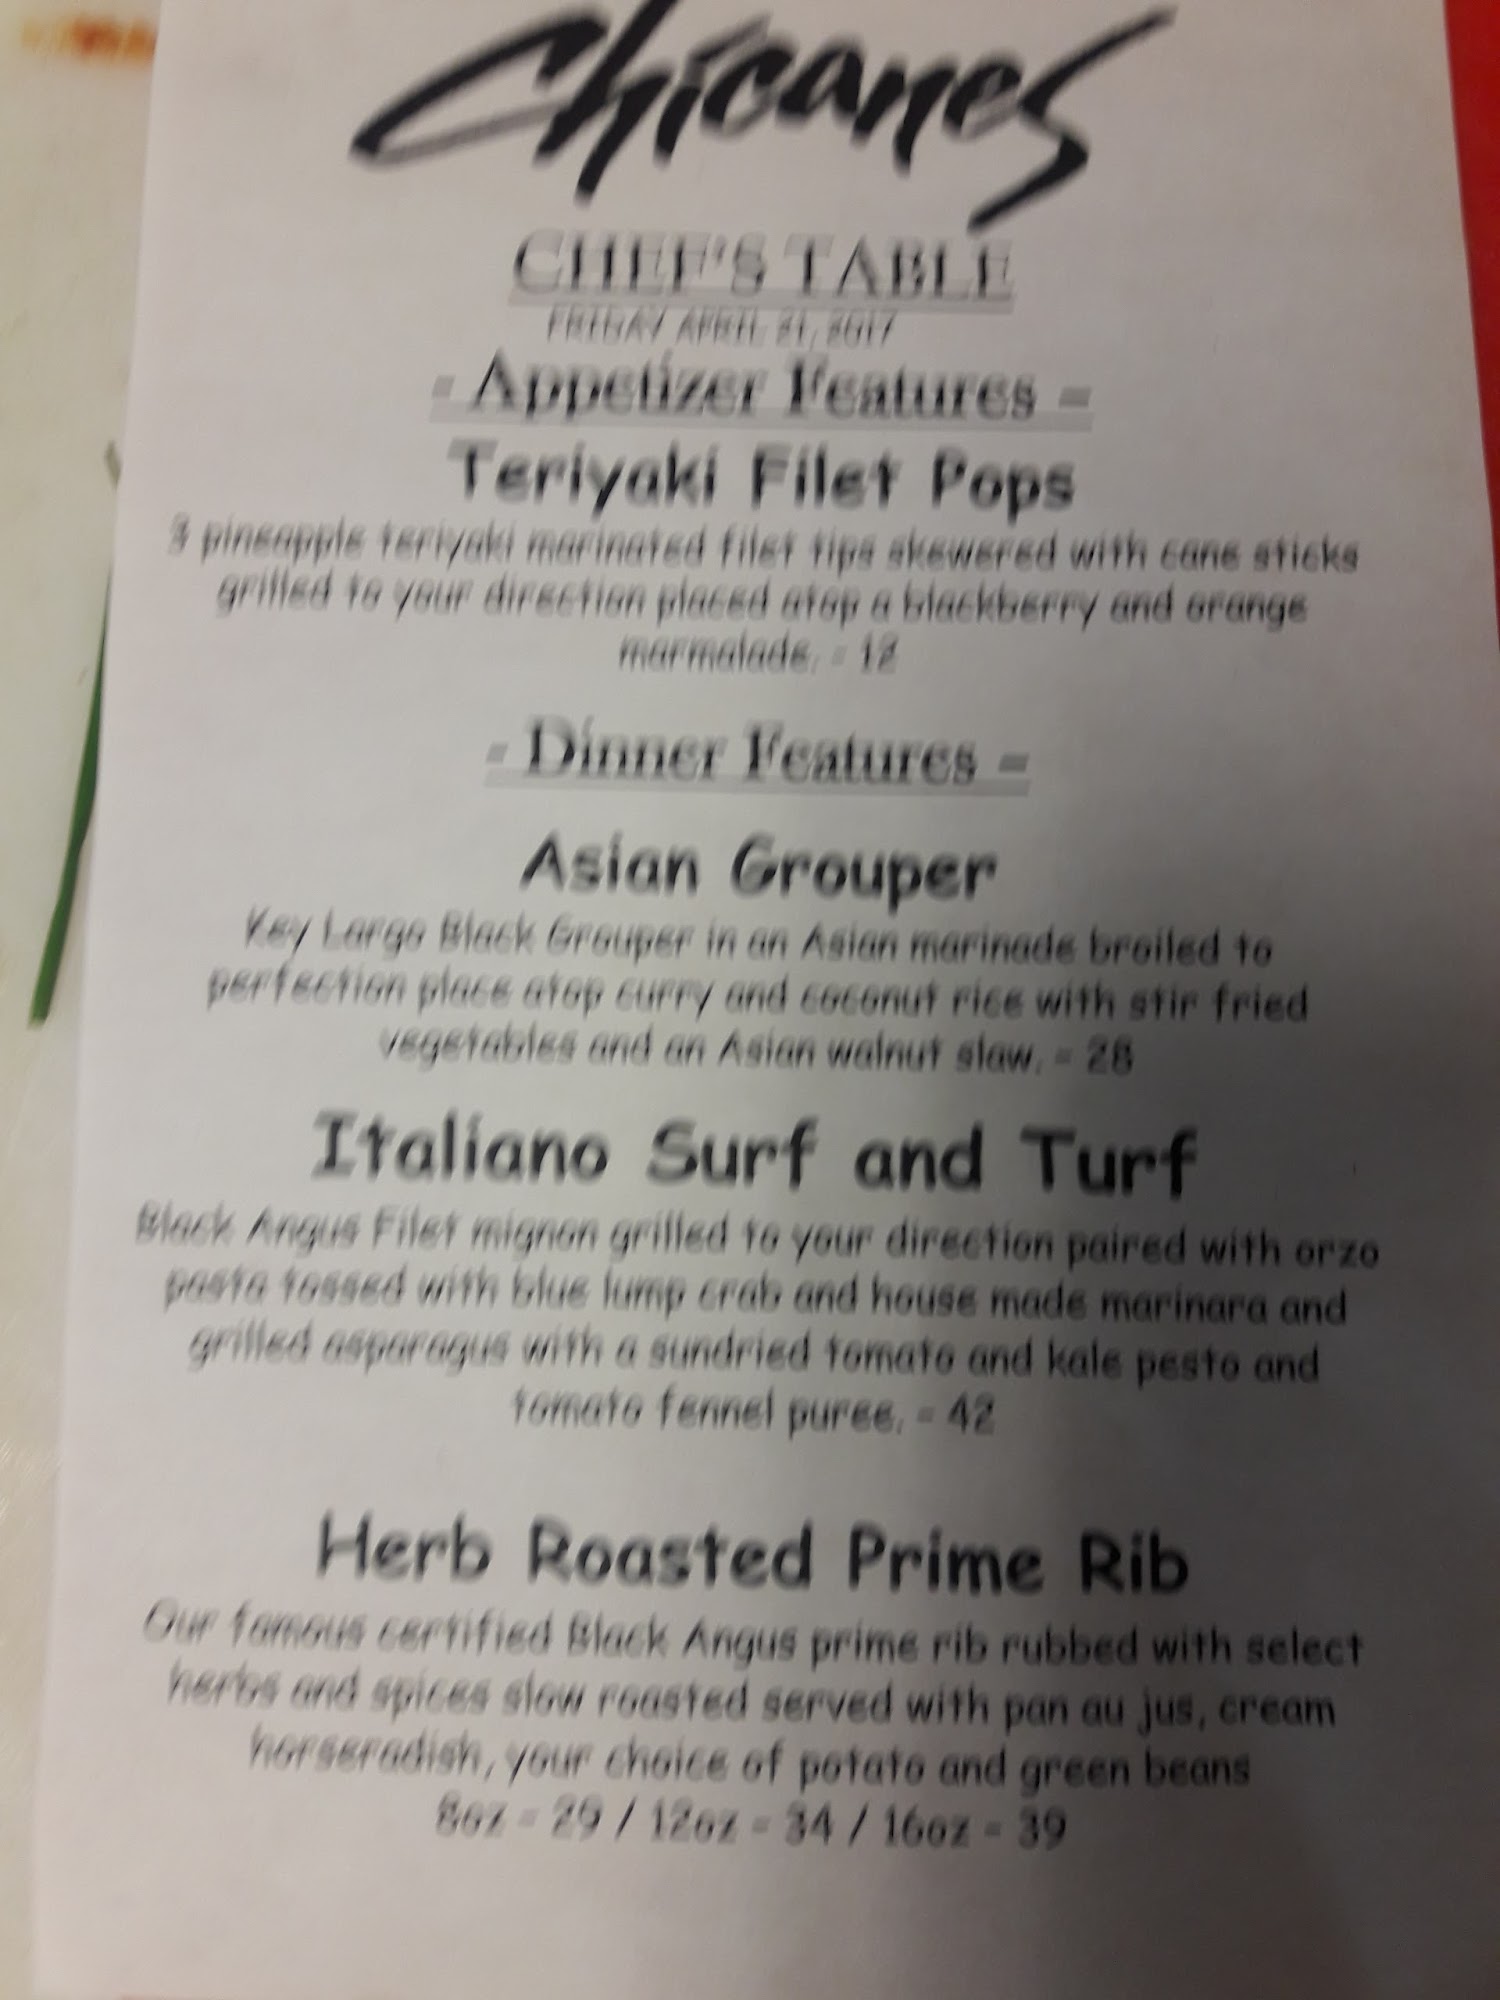 Chicanes
CHEF'S TABLE
FRIDAY APRIL 21, 2017
- Appetizer Features -
Teriyaki Filet Pops
3 pineapple teriyaki marinated filet tips skewered with cane sticks
grilled to your direction placed atop a blackberry and orange
marmalade. - 12
- Dinner Features -
Asian Grouper
Key Largo Black Grouper in an Asian marinade broiled to
perfection place atop curry and coconut rice with stir fried
vegetables and an Asian walnut slaw. - 28
Italiano Surf and Turf
Black Angus Filet mignon grilled to your direction paired with orzo
pasta tossed with blue lump crab and house made marinara and
grilled asparagus with a sundried tomato and kale pesto and
tomato fennel puree. - 42
Herb Roasted Prime Rib
Our famous certified Black Angus prime rib rubbed with select
herbs and spices slow roasted served with pan au jus, cream
horseradish, your choice of potato and green beans
8oz - 29 / 12oz - 34 / 16oz - 39